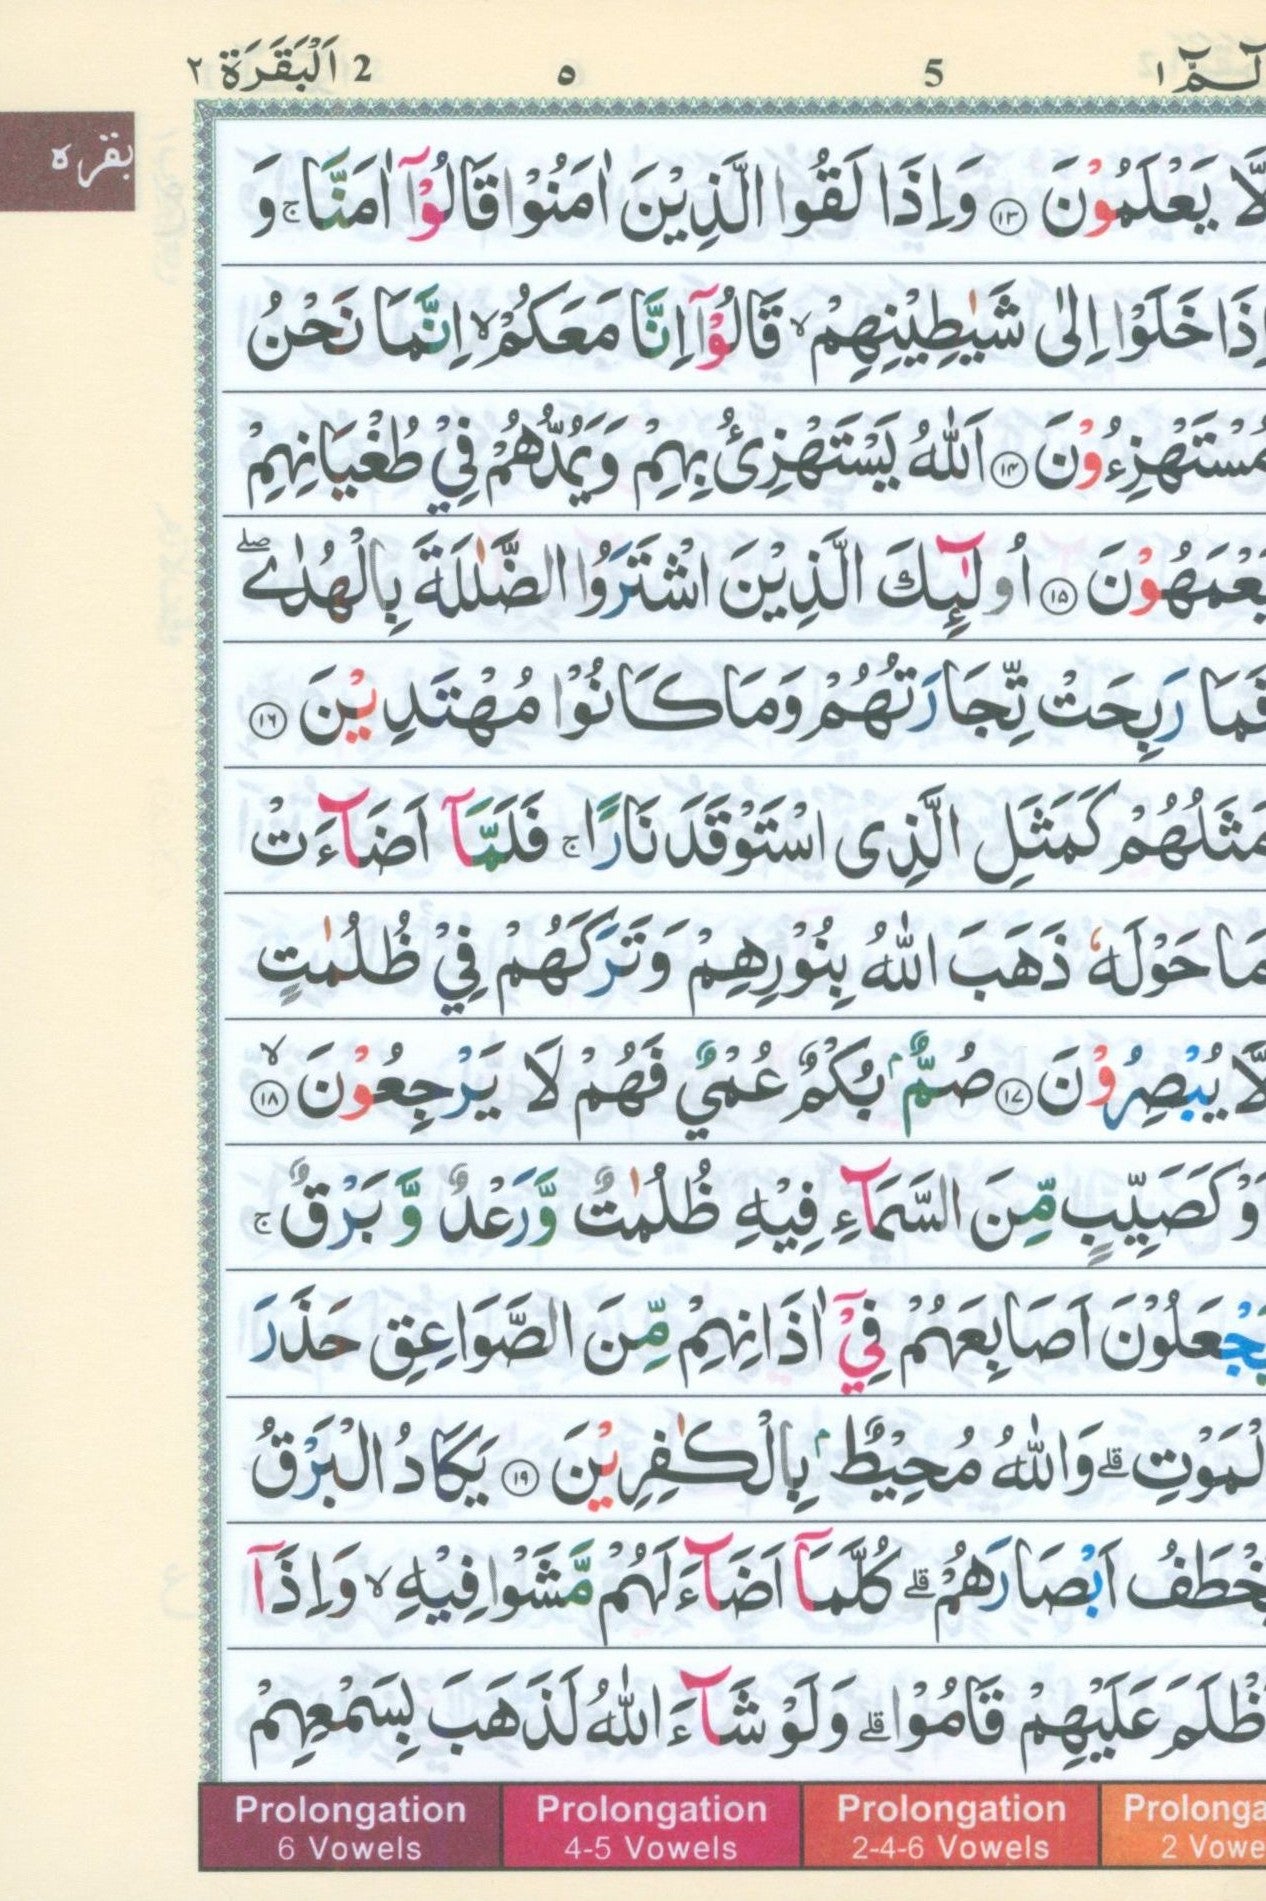 الٓـمّٓ ١ 5 ٥ 2 اَلْبَقَرَة ٢
بقره
لَّا يَعْلَمُوْنَ ۝١٣ وَاِذَا لَقُوا الَّذِيْنَ اٰمَنُوْا قَالُوْٓا اٰمَنَّا ۚ وَ
اِذَا خَلَوْا اِلٰى شَيٰطِيْنِهِمْ ۙ قَالُوْٓا اِنَّا مَعَكُمْ ۙ اِنَّمَا نَحْنُ
مُسْتَهْزِءُوْنَ ۝١٤ اَللّٰهُ يَسْتَهْزِئُ بِهِمْ وَيَمُدُّهُمْ فِيْ طُغْيَانِهِمْ
يَعْمَهُوْنَ ۝١٥ اُولٰٓئِكَ الَّذِيْنَ اشْتَرَوُا الضَّلٰلَةَ بِالْهُدٰى ۖ
فَمَا رَبِحَتْ تِّجَارَتُهُمْ وَمَا كَانُوْا مُهْتَدِيْنَ ۝١٦
مَثَلُهُمْ كَمَثَلِ الَّذِى اسْتَوْقَدَ نَارًا ۚ فَلَمَّآ اَضَآءَتْ
مَا حَوْلَهٗ ذَهَبَ اللّٰهُ بِنُوْرِهِمْ وَتَرَكَهُمْ فِيْ ظُلُمٰتٍ
لَّا يُبْصِرُوْنَ ۝١٧ صُمٌّۢ بُكْمٌ عُمْيٌ فَهُمْ لَا يَرْجِعُوْنَ ۙ ۝١٨
اَوْ كَصَيِّبٍ مِّنَ السَّمَآءِ فِيْهِ ظُلُمٰتٌ وَّرَعْدٌ وَّبَرْقٌ ۚ
يَجْعَلُوْنَ اَصَابِعَهُمْ فِيْٓ اٰذَانِهِمْ مِّنَ الصَّوَاعِقِ حَذَرَ
الْمَوْتِ ۗ وَاللّٰهُ مُحِيْطٌۢ بِالْكٰفِرِيْنَ ۝١٩ يَكَادُ الْبَرْقُ
يَخْطَفُ اَبْصَارَهُمْ ۗ كُلَّمَآ اَضَآءَ لَهُمْ مَّشَوْا فِيْهِ ۙ وَاِذَآ
اَظْلَمَ عَلَيْهِمْ قَامُوْا ۗ وَلَوْ شَآءَ اللّٰهُ لَذَهَبَ بِسَمْعِهِمْ
Prolongation Prolongation Prolongation Prolonga
6 Vowels 4-5 Vowels 2-4-6 Vowels 2 Vowe